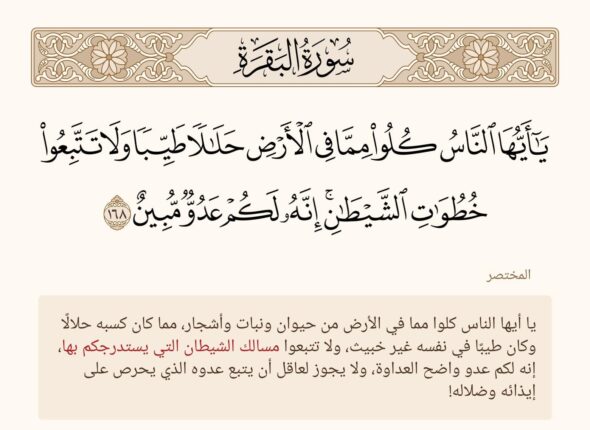 سُورَةُ البَقَرَةِ
يَـٰٓأَيُّهَا ٱلنَّاسُ كُلُوا۟ مِمَّا فِى ٱلْأَرْضِ حَلَـٰلًا طَيِّبًا وَلَا تَتَّبِعُوا۟
خُطُوَٰتِ ٱلشَّيْطَـٰنِ ۚ إِنَّهُۥ لَكُمْ عَدُوٌّ مُّبِينٌ ١٦٨
المختصر
يا أيها الناس كلوا مما في الأرض من حيوان ونبات وأشجار، مما كان كسبه حلالًا
وكان طيبًا في نفسه غير خبيث، ولا تتبعوا مسالك الشيطان التي يستدرجكم بها،
إنه لكم عدو واضح العداوة، ولا يجوز لعاقل أن يتبع عدوه الذي يحرص على
إيذائه وضلاله!